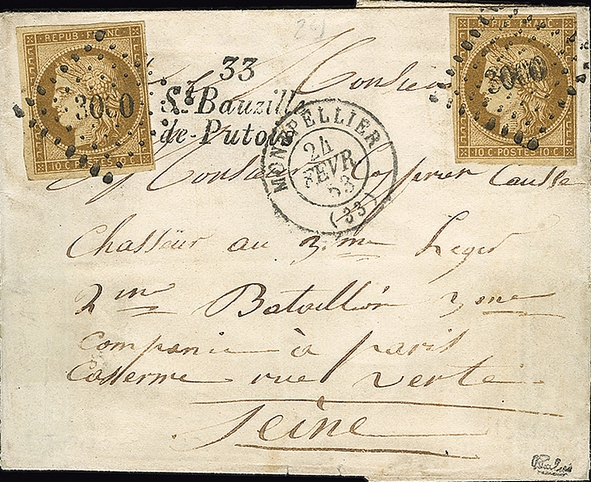 REPUB. FRANC.
10 C. POSTES. 10 C.
3080
33
St Bauzille
-de-Putois
MONTPELLIER
24
FEVR
53
(33)
REPUB. FRANC.
10 C. POSTES. 10 C.
3080
Monsieur
Monsieur Causse
Chasseur au 3.me Leger
2me Bataillion 3me
Companie à paris
Caserme rue Verte
Seine